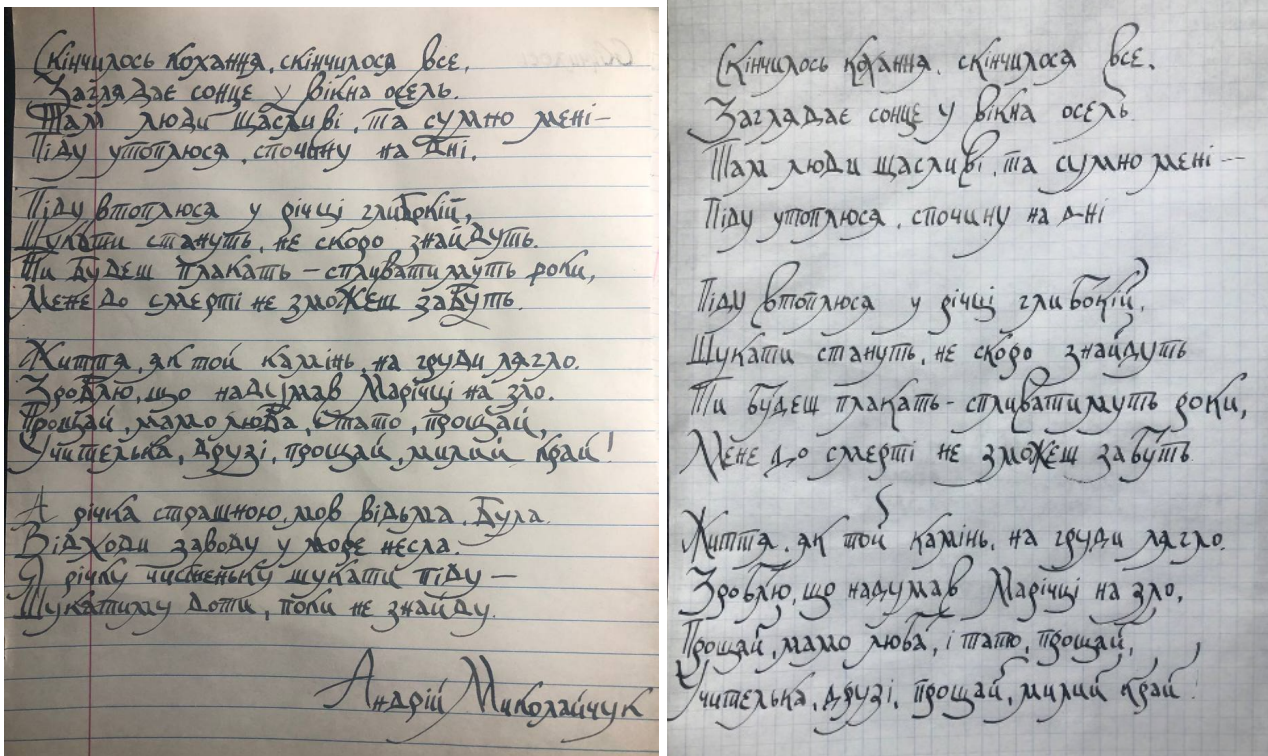 Скінчилось кохання, скінчилося все,
Заглядає сонце у вікна осель.
Там люди щасливі, та сумно мені –
Піду утоплюся, спочину на дні.
Піду втоплюся у річці глибокій,
Шукати стануть, не скоро знайдуть.
Ти будеш плакать – спливатимуть роки,
Мене до смерті не зможеш забуть.
Життя, як той камінь, на груди лягло.
Зроблю, що надумав Марічці на зло.
Прощай, мамо люба, і тато, прощай,
Учителька, друзі, прощай, милий край!
А річка страшною, мов відьма, була.
Відходи заводу у море несла.
Я річку чистеньку шукати піду –
Шукатиму доти, поки не знайду.
Андрій Миколайчук
Скінчилось кохання, скінчилося все,
Заглядає сонце у вікна осель
Там люди щасливі, та сумно мені –
Піду утоплюся, спочину на дні
Піду втоплюся у річці глибокій,
Шукати стануть, не скоро знайдуть
Ти будеш плакать – спливатимуть роки,
Мене до смерті не зможеш забуть
Життя, як той камінь, на груди лягло.
Зроблю, що надумав Марічці на зло,
Прощай, мамо люба, і тату, прощай,
Учителька, друзі, прощай, милий край!